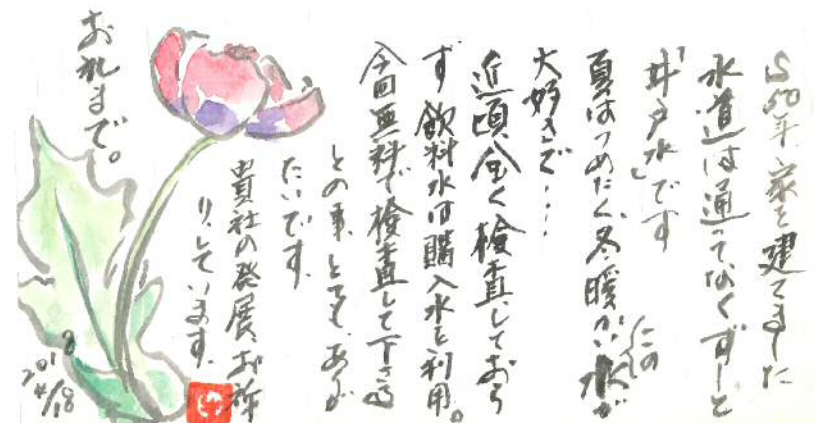 S50年、家を建てました
水道は通ってなくずーと
「井戸水」です
夏はつめたく、冬暖かいこの水が
大好きで・・・
近頃全く検査しておら
ず飲料水は購入水を利用。
今回無料で検査して下さる
との事、とても、ありが
たいです。
貴社の発展、お祈
りしています。
お礼まで。
2018
4/18